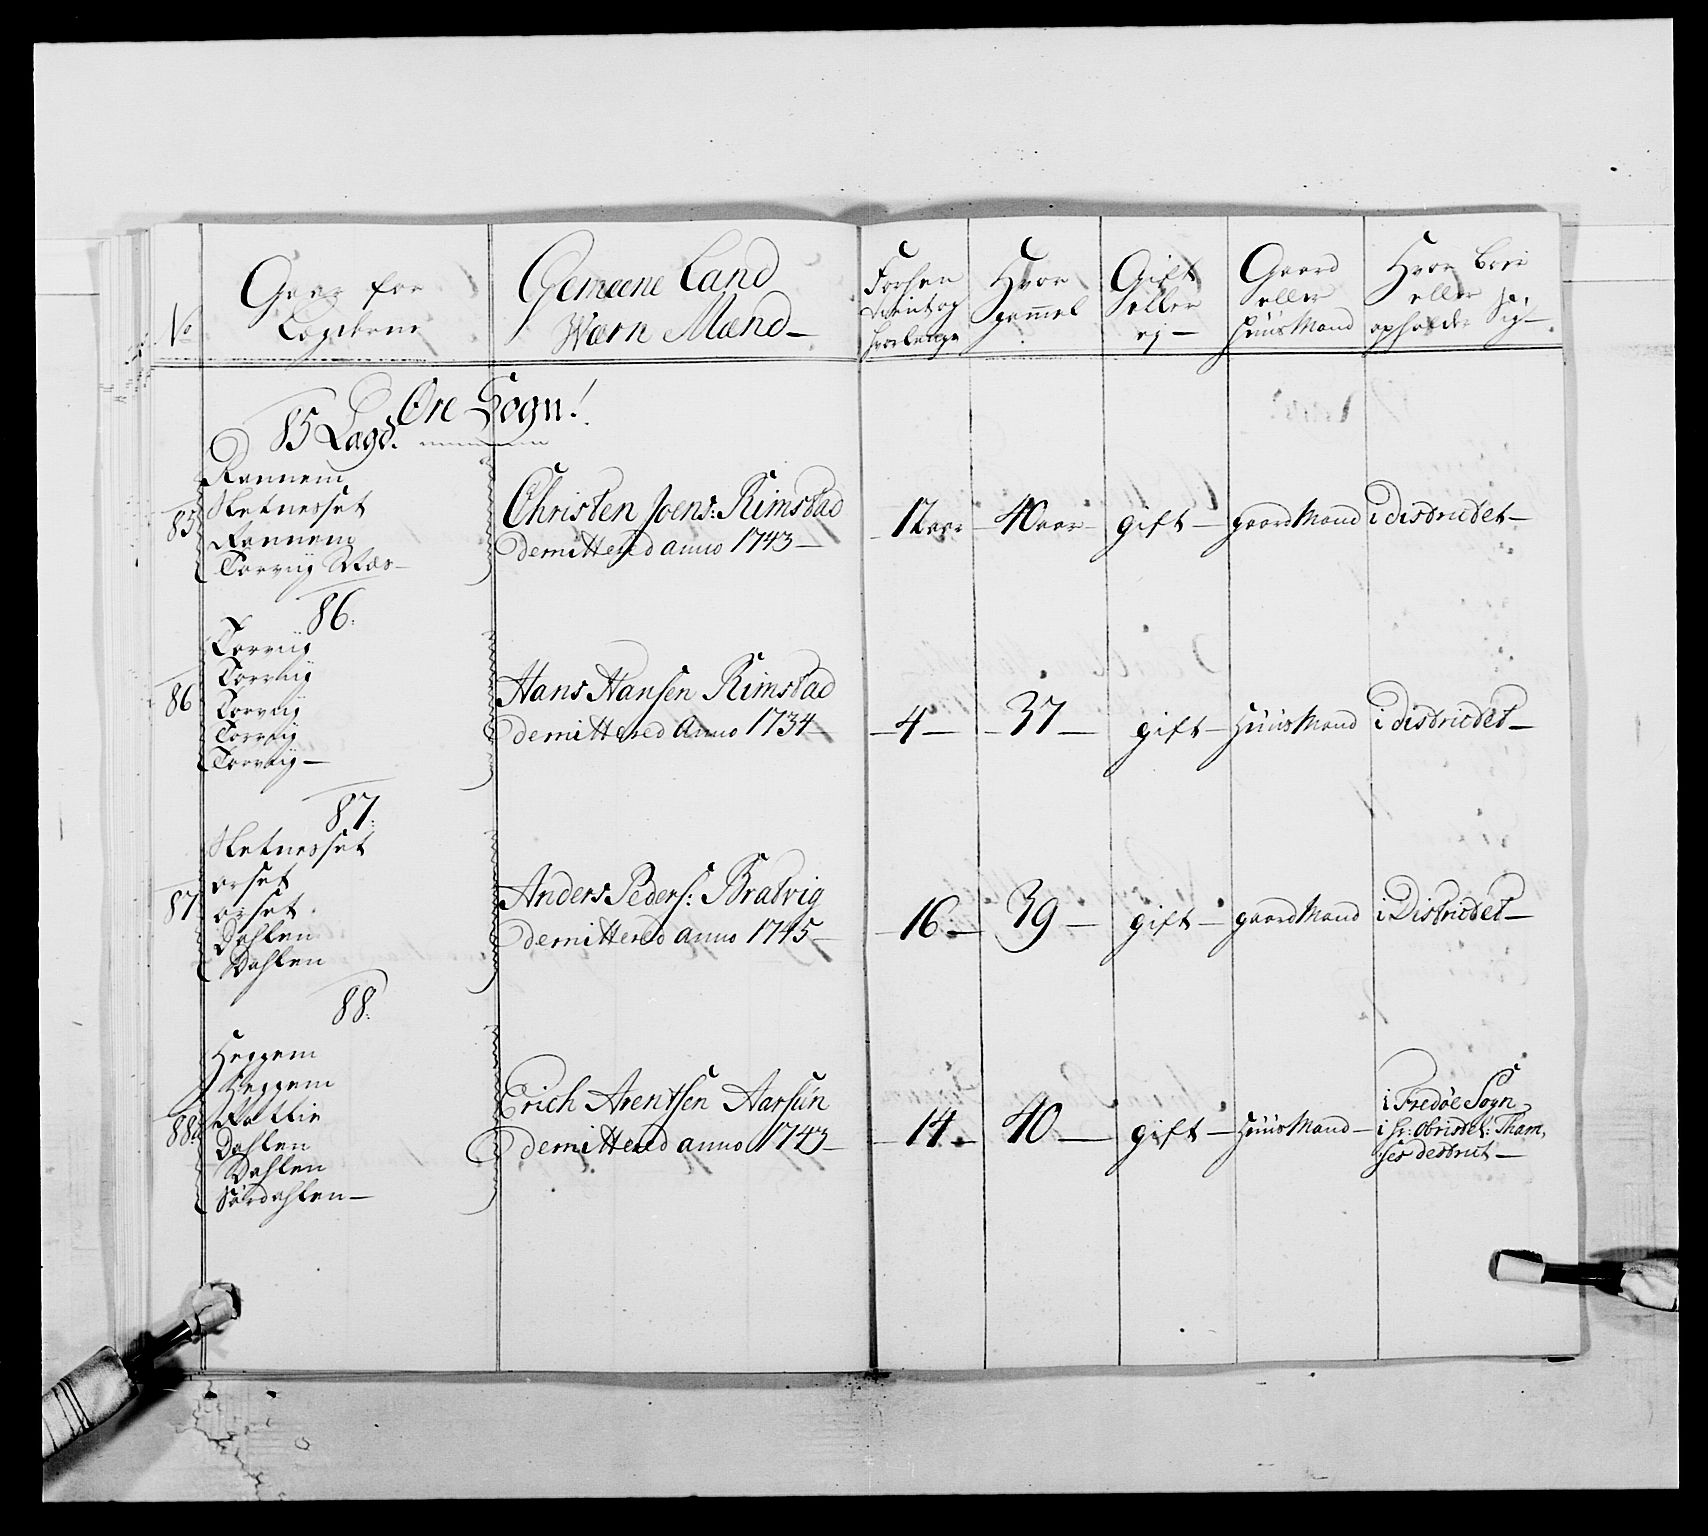 No
Gaar for
Lægderne
Gemeene Land
Wærn Mænd
Forhen
tient og
hvorlenge
Hvor
gammel
Gift
eller
ej
Gaard
eller
Huus Mand
Hvor boer
eller
opholder Sig
Øre Sogn!
85 Lægd.
85
Rannem
Netnesset
Rannem
Torviig Næs
Christen Joens: Rimstad
demittered anno 1743
12 aar
40 aar
gift
gaard Mand
i districtet
86.
86
Torviig
Torviig
Torviig
Torviig
Torviig
Hans Hansen Rimstad
demittered Anno 1734
4
37
gift
Huus Mand
i districtet
87.
87
Netnesset
orset
orset
Dahlen
Dahlen
Anders Peders: Bratvig
demittered anno 1745
16
39
gift
gaard Mand
i Districtet
88.
88
Heggem
Heggem
Dahlen
Dahlen
Sørdahlen
Erich Arentsen Aarsun
demittered anno 1743
14
40
gift
Huus Mand
i Fredøe Sogn
i Hr: Obristl: Tham,
ses destrict